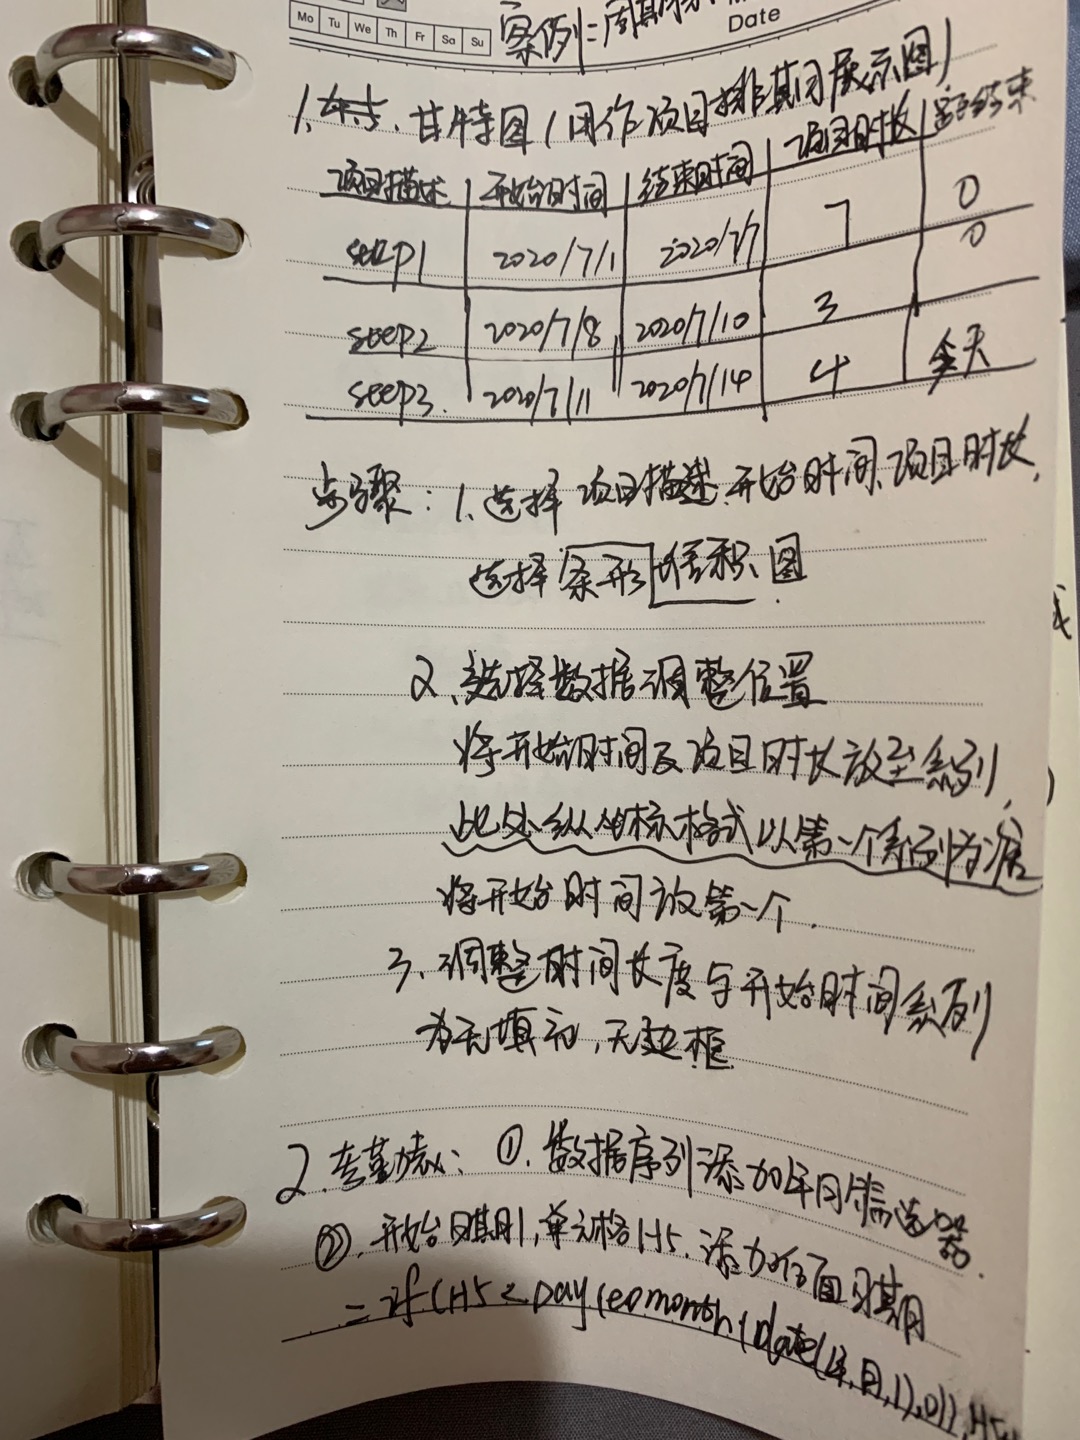 Mo Tu We Th Fr Sa Su
Date
案例:周期
1. 甘特图(用作项目排期展示图)
项目描述 开始时间 结束时间 项目时长 结束
steep1 2020/7/1 2020/7/7 7 0
0
steep2 2020/7/8 2020/7/10 3
steep3. 2020/7/11 2020/7/14 4 今天
步骤: 1.选择 项目描述、开始时间、项目时长,
选择 条形堆积图.
2、选择数据调整位置
将开始时间及项目时长放至系列,
此处纵坐标格式以第一个系列为准
将开始时间放第一个.
3、调整时间长度与开始时间系列
为无填充,无边框
2.考勤表: ①.数据序列添加年月筛选器.
②.开始日期1,单元格H5.添加后面日期
=if(H5<Day(eomonth(date(年,月,1),0)),H5